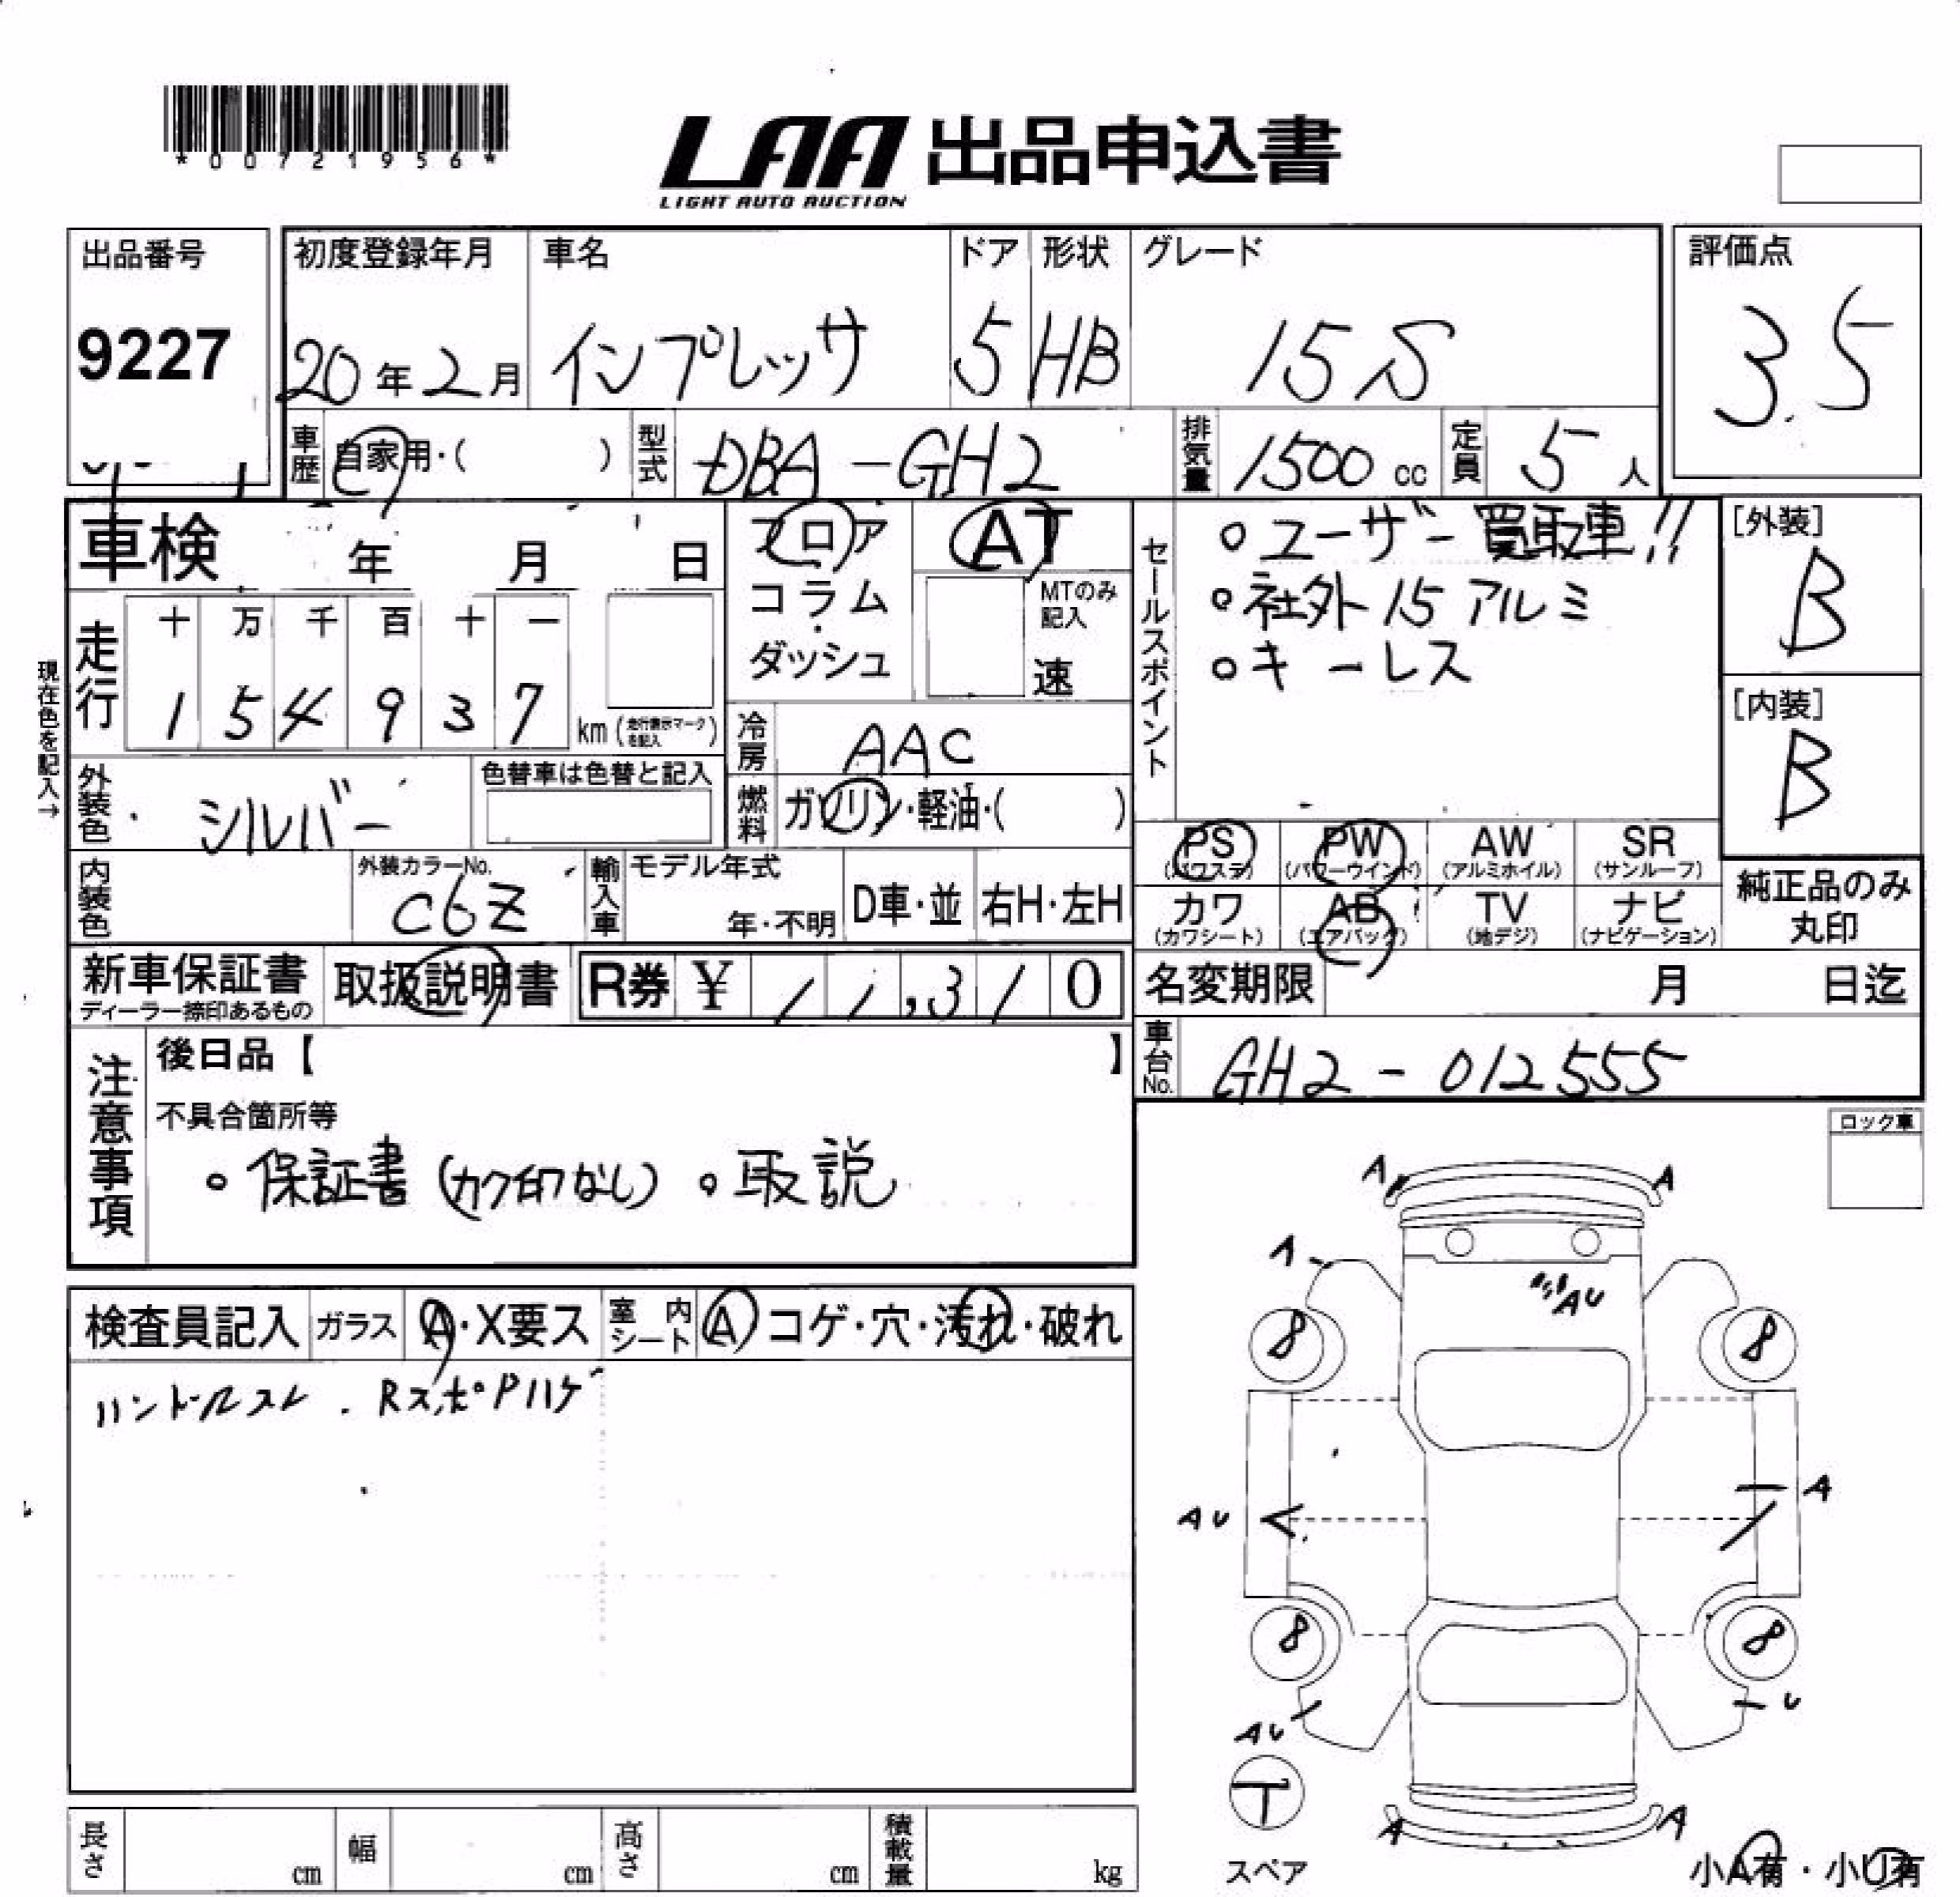 *00721956*
LAA 出品申込書
LIGHT AUTO AUCTION
出品番号
9227
初度登録年月
20年2月
車名
インプレッサ
ドア
5
形状
HB
グレード
15S
評価点
3.5
車歴
自家用・( )
型式
DBA-GH2
排気量
1500cc
定員
5人
車検 年 月 日
フロア
コラム・
ダッシュ
AT
MTのみ記入
速
走行
十 万 千 百 十 一
1 5 4 9 3 7 km (走行表示マークを記入)
現在色を記入→
冷房
AAC
外装色
シルバー
色替車は色替と記入
燃料
ガソリン・軽油・( )
セールスポイント
○ユーザー買取車!!
○社外15アルミ
○キーレス
[外装]
B
[内装]
B
PS (パワステ) PW (パワーウインド) AW (アルミホイル) SR (サンルーフ)
カワ (カワシート) AB (エアバッグ) TV (地デジ) ナビ (ナビゲーション)
純正品のみ
丸印
内装色
外装カラーNo.
C6Z
輸入車
モデル年式
年・不明
D車・並
右H・左H
新車保証書
ディーラー捺印あるもの
取扱説明書
R券 ¥ 11,310
名変期限 月 日迄
車台No.
GH2-012555
注意事項
後日品【 】
不具合箇所等
○保証書(カク印なし) ○取説
ロック車
検査員記入
ガラス A・X要ス
室内シート A コゲ・穴・汚れ・破れ
ハンドルスレ . RスポPハゲ
A A
A
AU
8 8
A
AU
8 8
U
AU
T
スペア
A A
小A有・小U有
長さ cm
幅 cm
高さ cm
積載量 kg